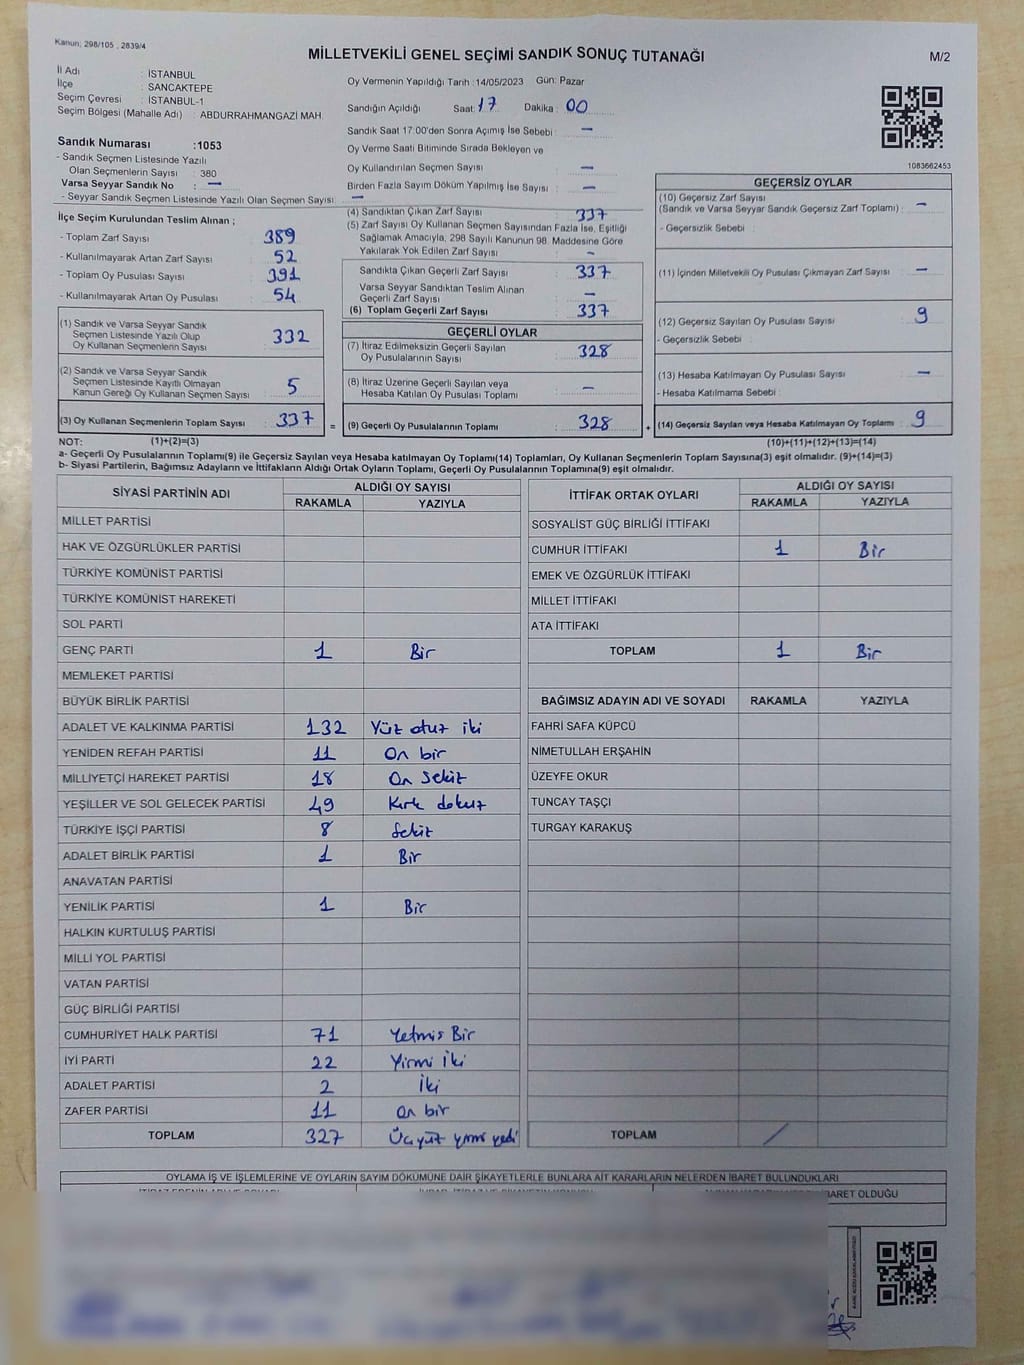 Kanun; 298/105 , 2839/4
MİLLETVEKİLİ GENEL SEÇİMİ SANDIK SONUÇ TUTANAĞI
M/2
İl Adı : İSTANBUL
İlçe : SANCAKTEPE
Seçim Çevresi : İSTANBUL-1
Seçim Bölgesi (Mahalle Adı) : ABDURRAHMANGAZİ MAH.
Sandık Numarası :1053
- Sandık Seçmen Listesinde Yazılı
Olan Seçmenlerin Sayısı : 380
Varsa Seyyar Sandık No : —
- Seyyar Sandık Seçmen Listesinde Yazılı Olan Seçmen Sayısı : —
Oy Vermenin Yapıldığı Tarih : 14/05/2023 Gün: Pazar
Sandığın Açıldığı Saat: 17 Dakika : 00
Sandık Saat 17:00'den Sonra Açımış İse Sebebi : —
Oy Verme Saati Bitiminde Sırada Bekleyen ve
Oy Kullandırılan Seçmen Sayısı : —
Birden Fazla Sayım Döküm Yapılmış İse Sayısı : —
1083662453
İlçe Seçim Kurulundan Teslim Alınan ;
- Toplam Zarf Sayısı : 389
- Kullanılmayarak Artan Zarf Sayısı : 52
- Toplam Oy Pusulası Sayısı : 391
- Kullanılmayarak Artan Oy Pusulası : 54
(1) Sandık ve Varsa Seyyar Sandık
Seçmen Listesinde Yazılı Olup
Oy Kullanan Seçmenlerin Sayısı : 332
(2) Sandık ve Varsa Seyyar Sandık
Seçmen Listesinde Kayıtlı Olmayan
Kanun Gereği Oy Kullanan Seçmen Sayısı : 5
(3) Oy Kullanan Seçmenlerin Toplam Sayısı : 337
(4) Sandıktan Çıkan Zarf Sayısı : 337
(5) Zarf Sayısı Oy Kullanan Seçmen Sayısından Fazla İse, Eşitliği
Sağlamak Amacıyla, 298 Sayılı Kanunun 98. Maddesine Göre
Yakılarak Yok Edilen Zarf Sayısı : —
Sandıkta Çıkan Geçerli Zarf Sayısı : 337
Varsa Seyyar Sandıktan Teslim Alınan
Geçerli Zarf Sayısı : —
(6) Toplam Geçerli Zarf Sayısı : 337
GEÇERLİ OYLAR
(7) İtiraz Edilmeksizin Geçerli Sayılan
Oy Pusulalarının Sayısı : 328
(8) İtiraz Üzerine Geçerli Sayılan veya
Hesaba Katılan Oy Pusulası Toplamı : —
= (9) Geçerli Oy Pusulalarının Toplamı : 328
GEÇERSİZ OYLAR
(10) Geçersiz Zarf Sayısı
(Sandık ve Varsa Seyyar Sandık Geçersiz Zarf Toplamı) : —
- Geçersizlik Sebebi :
(11) İçinden Milletvekili Oy Pusulası Çıkmayan Zarf Sayısı : —
(12) Geçersiz Sayılan Oy Pusulası Sayısı : 9
- Geçersizlik Sebebi :
(13) Hesaba Katılmayan Oy Pusulası Sayısı : —
- Hesaba Katılmama Sebebi :
+ (14) Geçersiz Sayılan veya Hesaba Katılmayan Oy Toplamı : 9
NOT: (1)+(2)=(3) (10)+(11)+(12)+(13)=(14)
a- Geçerli Oy Pusulalarının Toplamı(9) ile Geçersiz Sayılan veya Hesaba katılmayan Oy Toplamı(14) Toplamları, Oy Kullanan Seçmenlerin Toplam Sayısına(3) eşit olmalıdır. (9)+(14)=(3)
b- Siyasi Partilerin, Bağımsız Adayların ve İttifakların Aldığı Ortak Oyların Toplamı, Geçerli Oy Pusulalarının Toplamına(9) eşit olmalıdır.
SİYASİ PARTİNİN ADI ALDIĞI OY SAYISI
RAKAMLA YAZIYLA
MİLLET PARTİSİ
HAK VE ÖZGÜRLÜKLER PARTİSİ
TÜRKİYE KOMÜNİST PARTİSİ
TÜRKİYE KOMÜNİST HAREKETİ
SOL PARTİ
GENÇ PARTİ 1 Bir
MEMLEKET PARTİSİ
BÜYÜK BİRLİK PARTİSİ
ADALET VE KALKINMA PARTİSİ 132 Yüz otuz iki
YENİDEN REFAH PARTİSİ 11 On bir
MİLLİYETÇİ HAREKET PARTİSİ 18 On sekiz
YEŞİLLER VE SOL GELECEK PARTİSİ 49 Kırk dokuz
TÜRKİYE İŞÇİ PARTİSİ 8 Sekiz
ADALET BİRLİK PARTİSİ 1 Bir
ANAVATAN PARTİSİ
YENİLİK PARTİSİ 1 Bir
HALKIN KURTULUŞ PARTİSİ
MİLLİ YOL PARTİSİ
VATAN PARTİSİ
GÜÇ BİRLİĞİ PARTİSİ
CUMHURİYET HALK PARTİSİ 71 Yetmis Bir
İYİ PARTİ 22 Yirmi İki
ADALET PARTİSİ 2 İki
ZAFER PARTİSİ 11 On bir
TOPLAM 327 Üçyüz yirmi yedi
İTTİFAK ORTAK OYLARI ALDIĞI OY SAYISI
RAKAMLA YAZIYLA
SOSYALİST GÜÇ BİRLİĞİ İTTİFAKI
CUMHUR İTTİFAKI 1 Bir
EMEK VE ÖZGÜRLÜK İTTİFAKI
MİLLET İTTİFAKI
ATA İTTİFAKI
TOPLAM 1 Bir
BAĞIMSIZ ADAYIN ADI VE SOYADI RAKAMLA YAZIYLA
FAHRİ SAFA KÜPCÜ
NİMETULLAH ERŞAHİN
ÜZEYFE OKUR
TUNCAY TAŞÇI
TURGAY KARAKUŞ
TOPLAM /
OYLAMA İŞ VE İŞLEMLERİNE VE OYLARIN SAYIM DÖKÜMÜNE DAİR ŞİKAYETLERLE BUNLARA AİT KARARLARIN NELERDEN İBARET BULUNDUKLARI
İBARET OLDUĞU